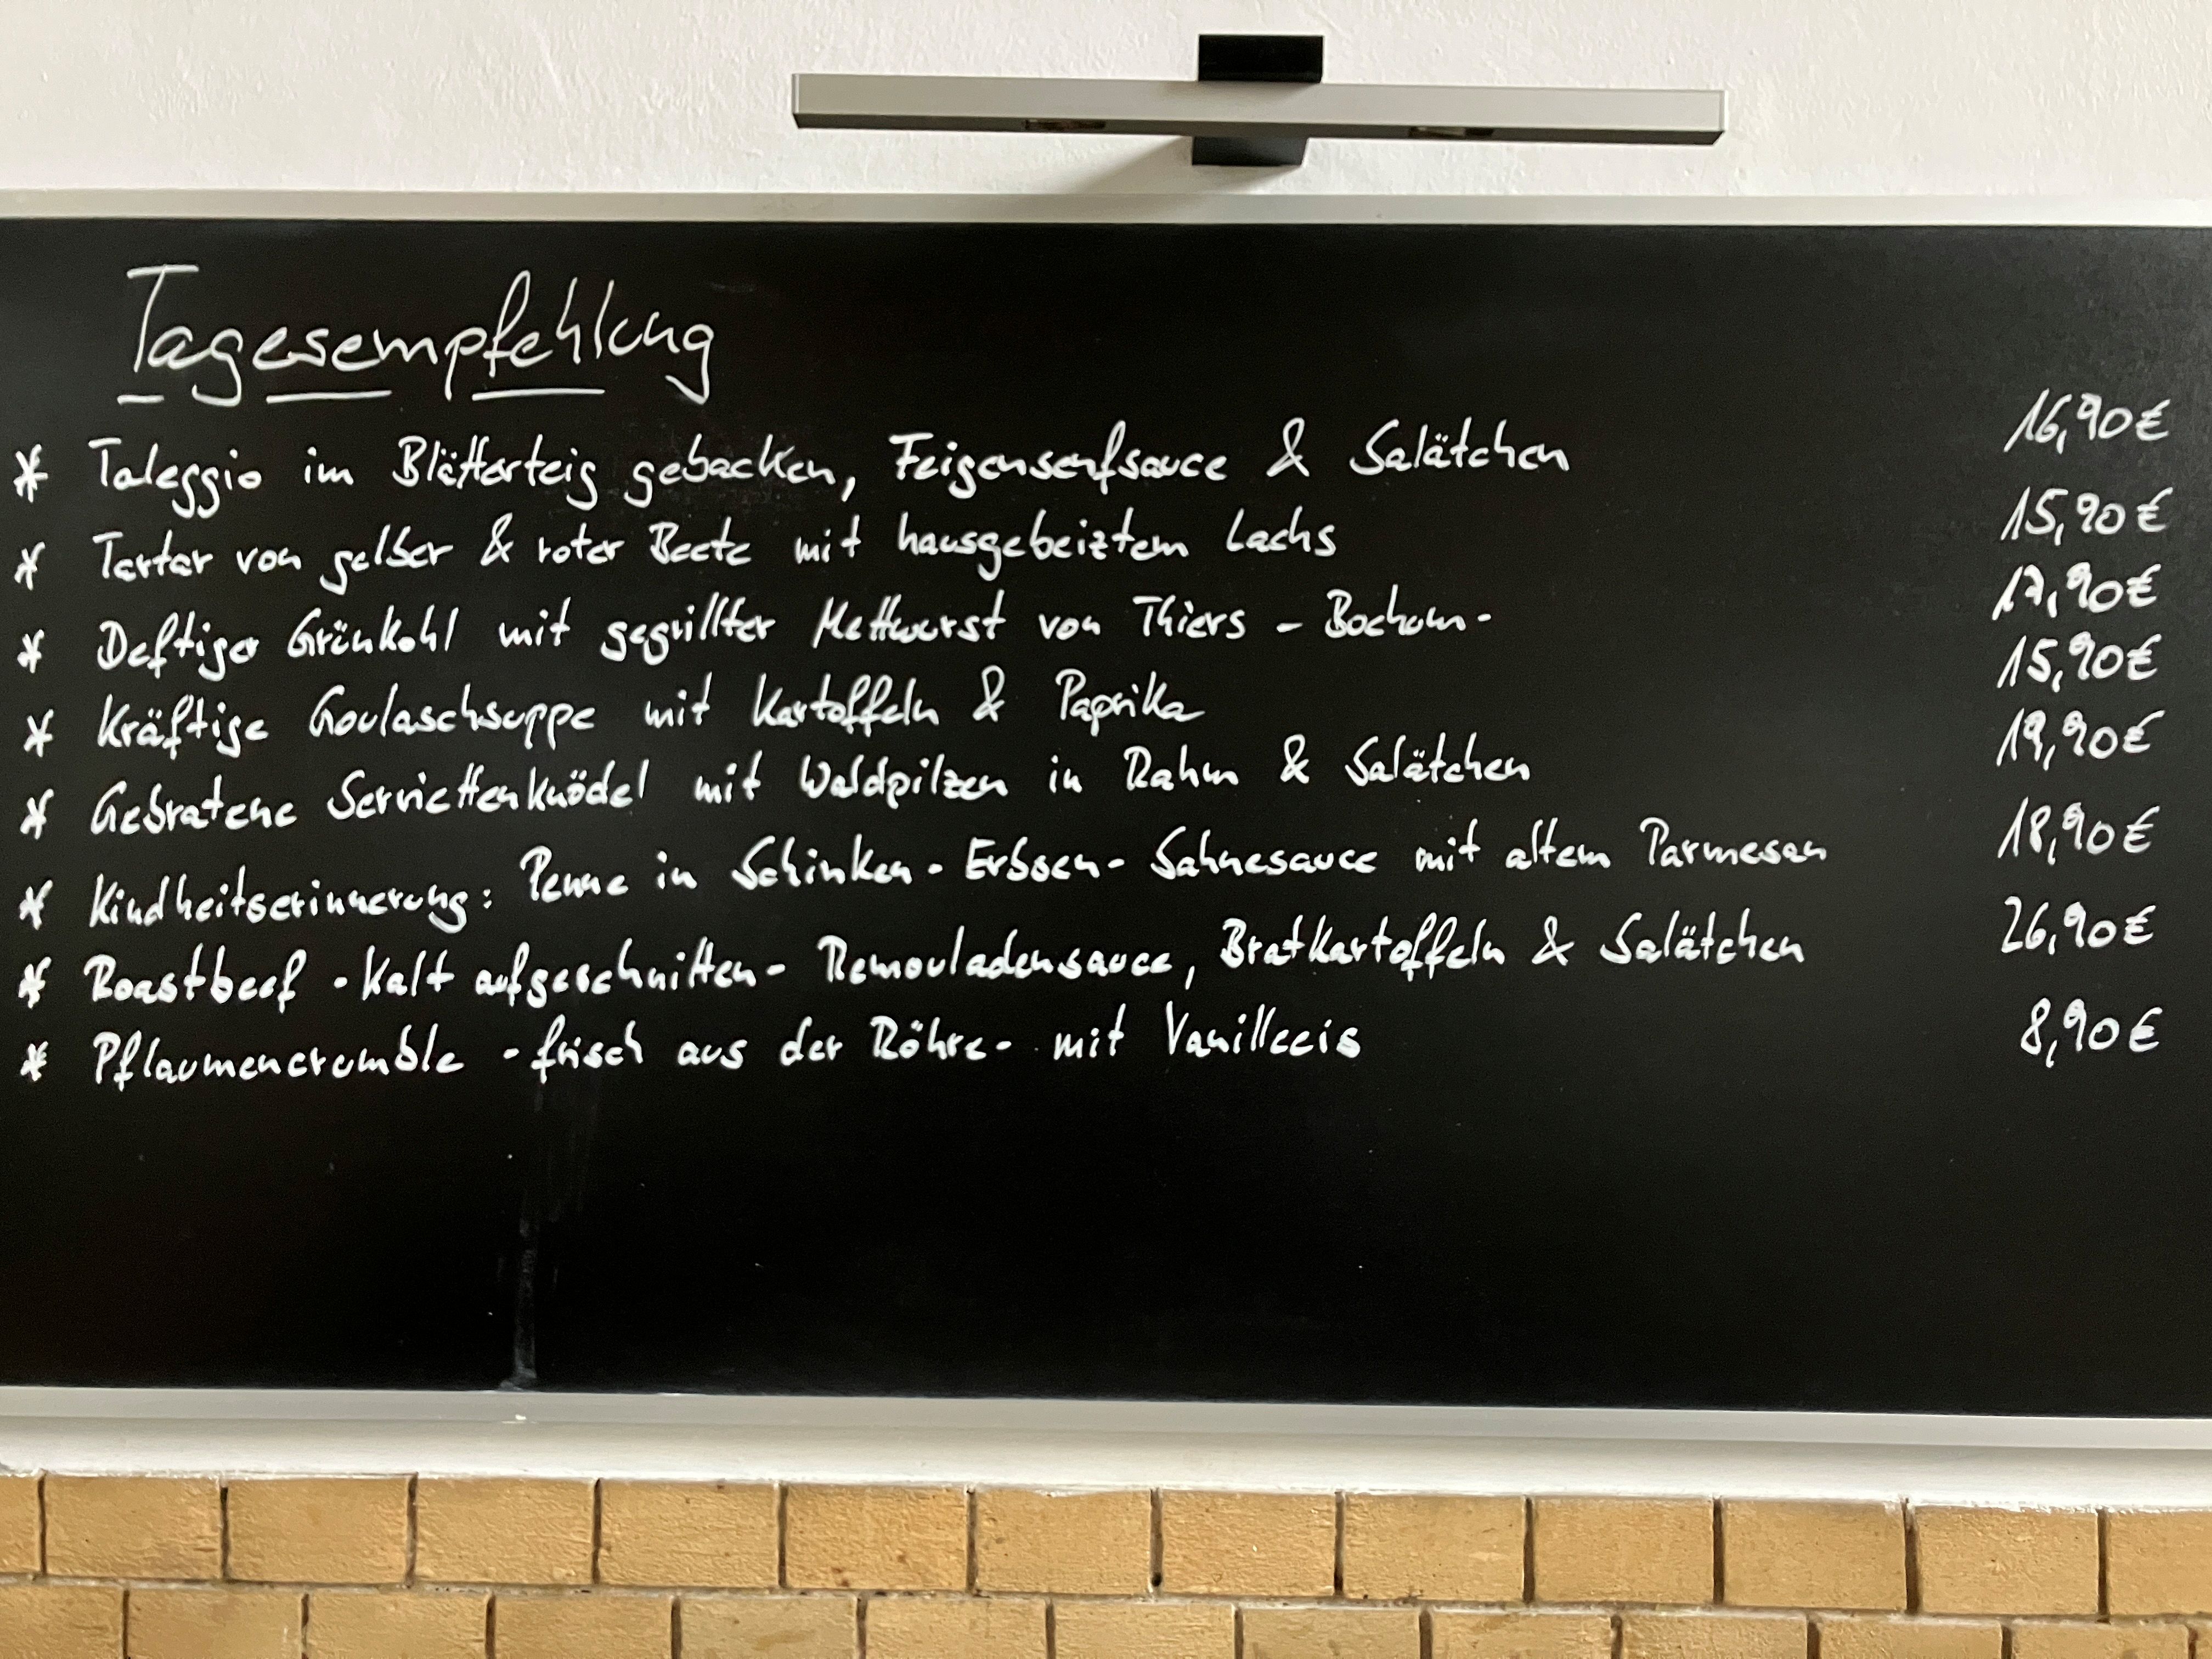 Tagesempfehlung
* Taleggio im Blätterteig gebacken, Feigensenfsauce & Salätchen 16,90€
* Tartar von gelber & roter Beete mit hausgebeiztem Lachs 15,90€
* Deftiger Grünkohl mit gegrillter Mettwurst von Thiers - Bochum - 17,90€
* Kräftige Goulaschsuppe mit Kartoffeln & Paprika 15,90€
* Gebratene Serviettenknödel mit Waldpilzen in Rahm & Salätchen 19,90€
* Kindheitserinnerung: Penne in Schinken-Erbsen-Sahnesauce mit altem Parmesan 18,90€
* Roastbeef - Kalt aufgeschnitten - Remouladensauce, Bratkartoffeln & Salätchen 26,90€
* Pflaumencrumble - frisch aus der Röhre - mit Vanilleeis 8,90€